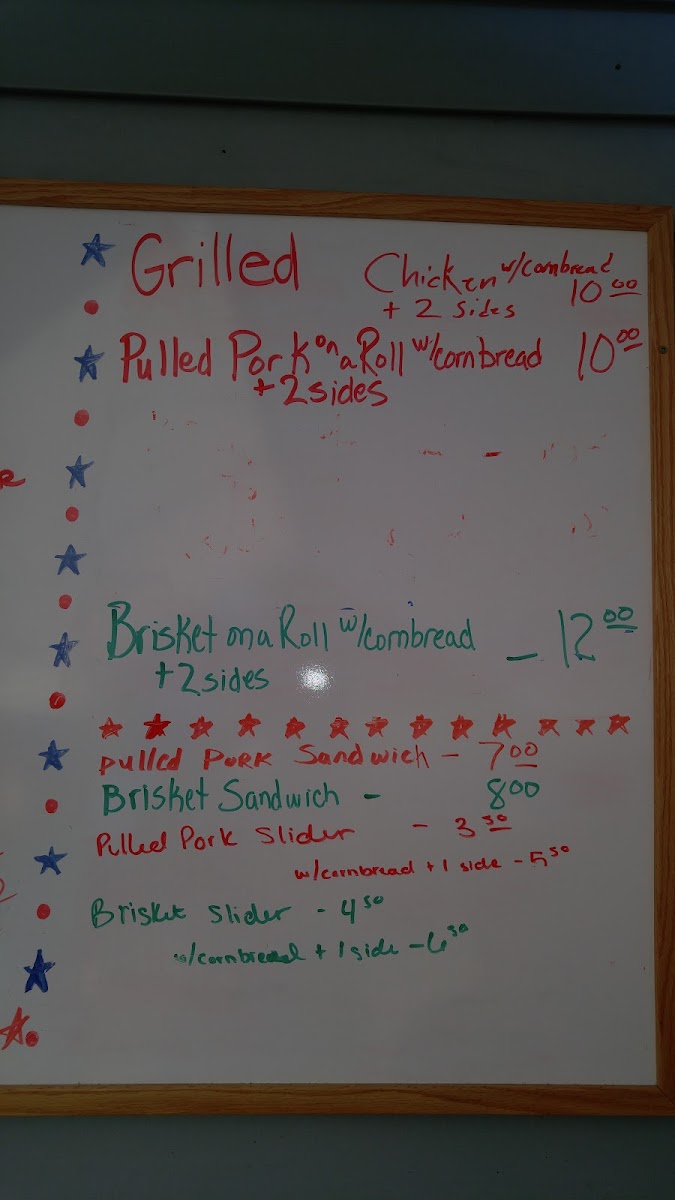 Grilled Chicken w/cornbread 10 00
+ 2 sides
Pulled Pork on a Roll w/cornbread 10 00
+ 2 sides
Brisket on a Roll w/cornbread - 12 00
+ 2 sides
Pulled Pork Sandwich - 7 00
Brisket Sandwich - 8 00
Pulled Pork Slider - 3 50
w/cornbread + 1 side - 5 50
Brisket Slider - 4 50
w/cornbread + 1 side - 6 50